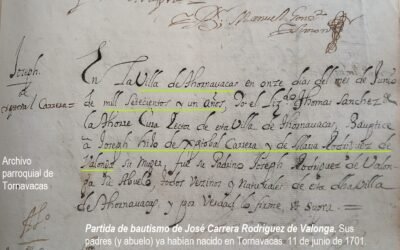 Dn. Manuel
Joseph
de
Xptobal Carrera
En la Villa de thornavacas en onze dias del mes de Junio
de mill setecientos y un años. Yo el Lizdo. Thomas Sanchez de
la thorre Cura Rector de esta Villa de thornavacas. Baptice
a Joseph hijo de xptobal Carrera y de Maria Rodriguez de
Valonga su muger, fue su Padrino Joseph Rodriguez de Valon-
ga su Abuelo todos vezinos y naturales de esta dha Villa
de thornavacas, y para Verdad lo firme ut supra.
Archivo
parroquial de
Tornavacas
Partida de bautismo de José Carrera Rodríguez de Valonga. Sus
padres (y abuelo) ya habían nacido en Tornavacas. 11 de junio de 1701.